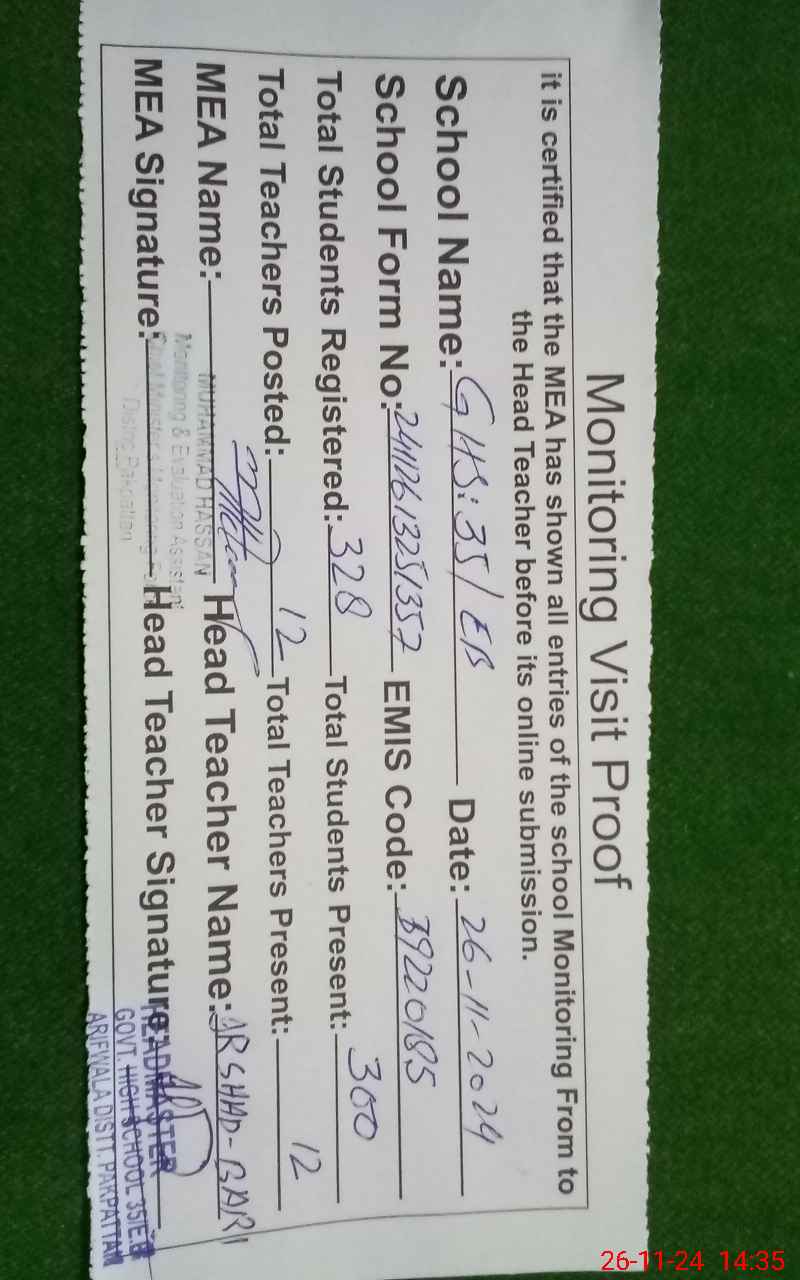 Monitoring Visit Proof
it is certified that the MEA has shown all entries of the school Monitoring From to
the Head Teacher before its online submission.
School Name: GHS: 35/EB Date: 26-11-2024
School Form No: 24112613251357 EMIS Code: 39220185
Total Students Registered: 328 Total Students Present: 300
Total Teachers Posted: 12 Total Teachers Present: 12
MEA Name: MUHAMMAD HASSAN Head Teacher Name: IRSHAD-BARI
Monitoring & Evaluation Assistant
MEA Signature: Head Teacher Signature:
Chief Minister's Monitoring
District Pakpattan
HEADMASTER
GOVT. HIGH SCHOOL 35/E.B
ARIFWALA DISTT. PAKPATTAN
26-11-24 14:35